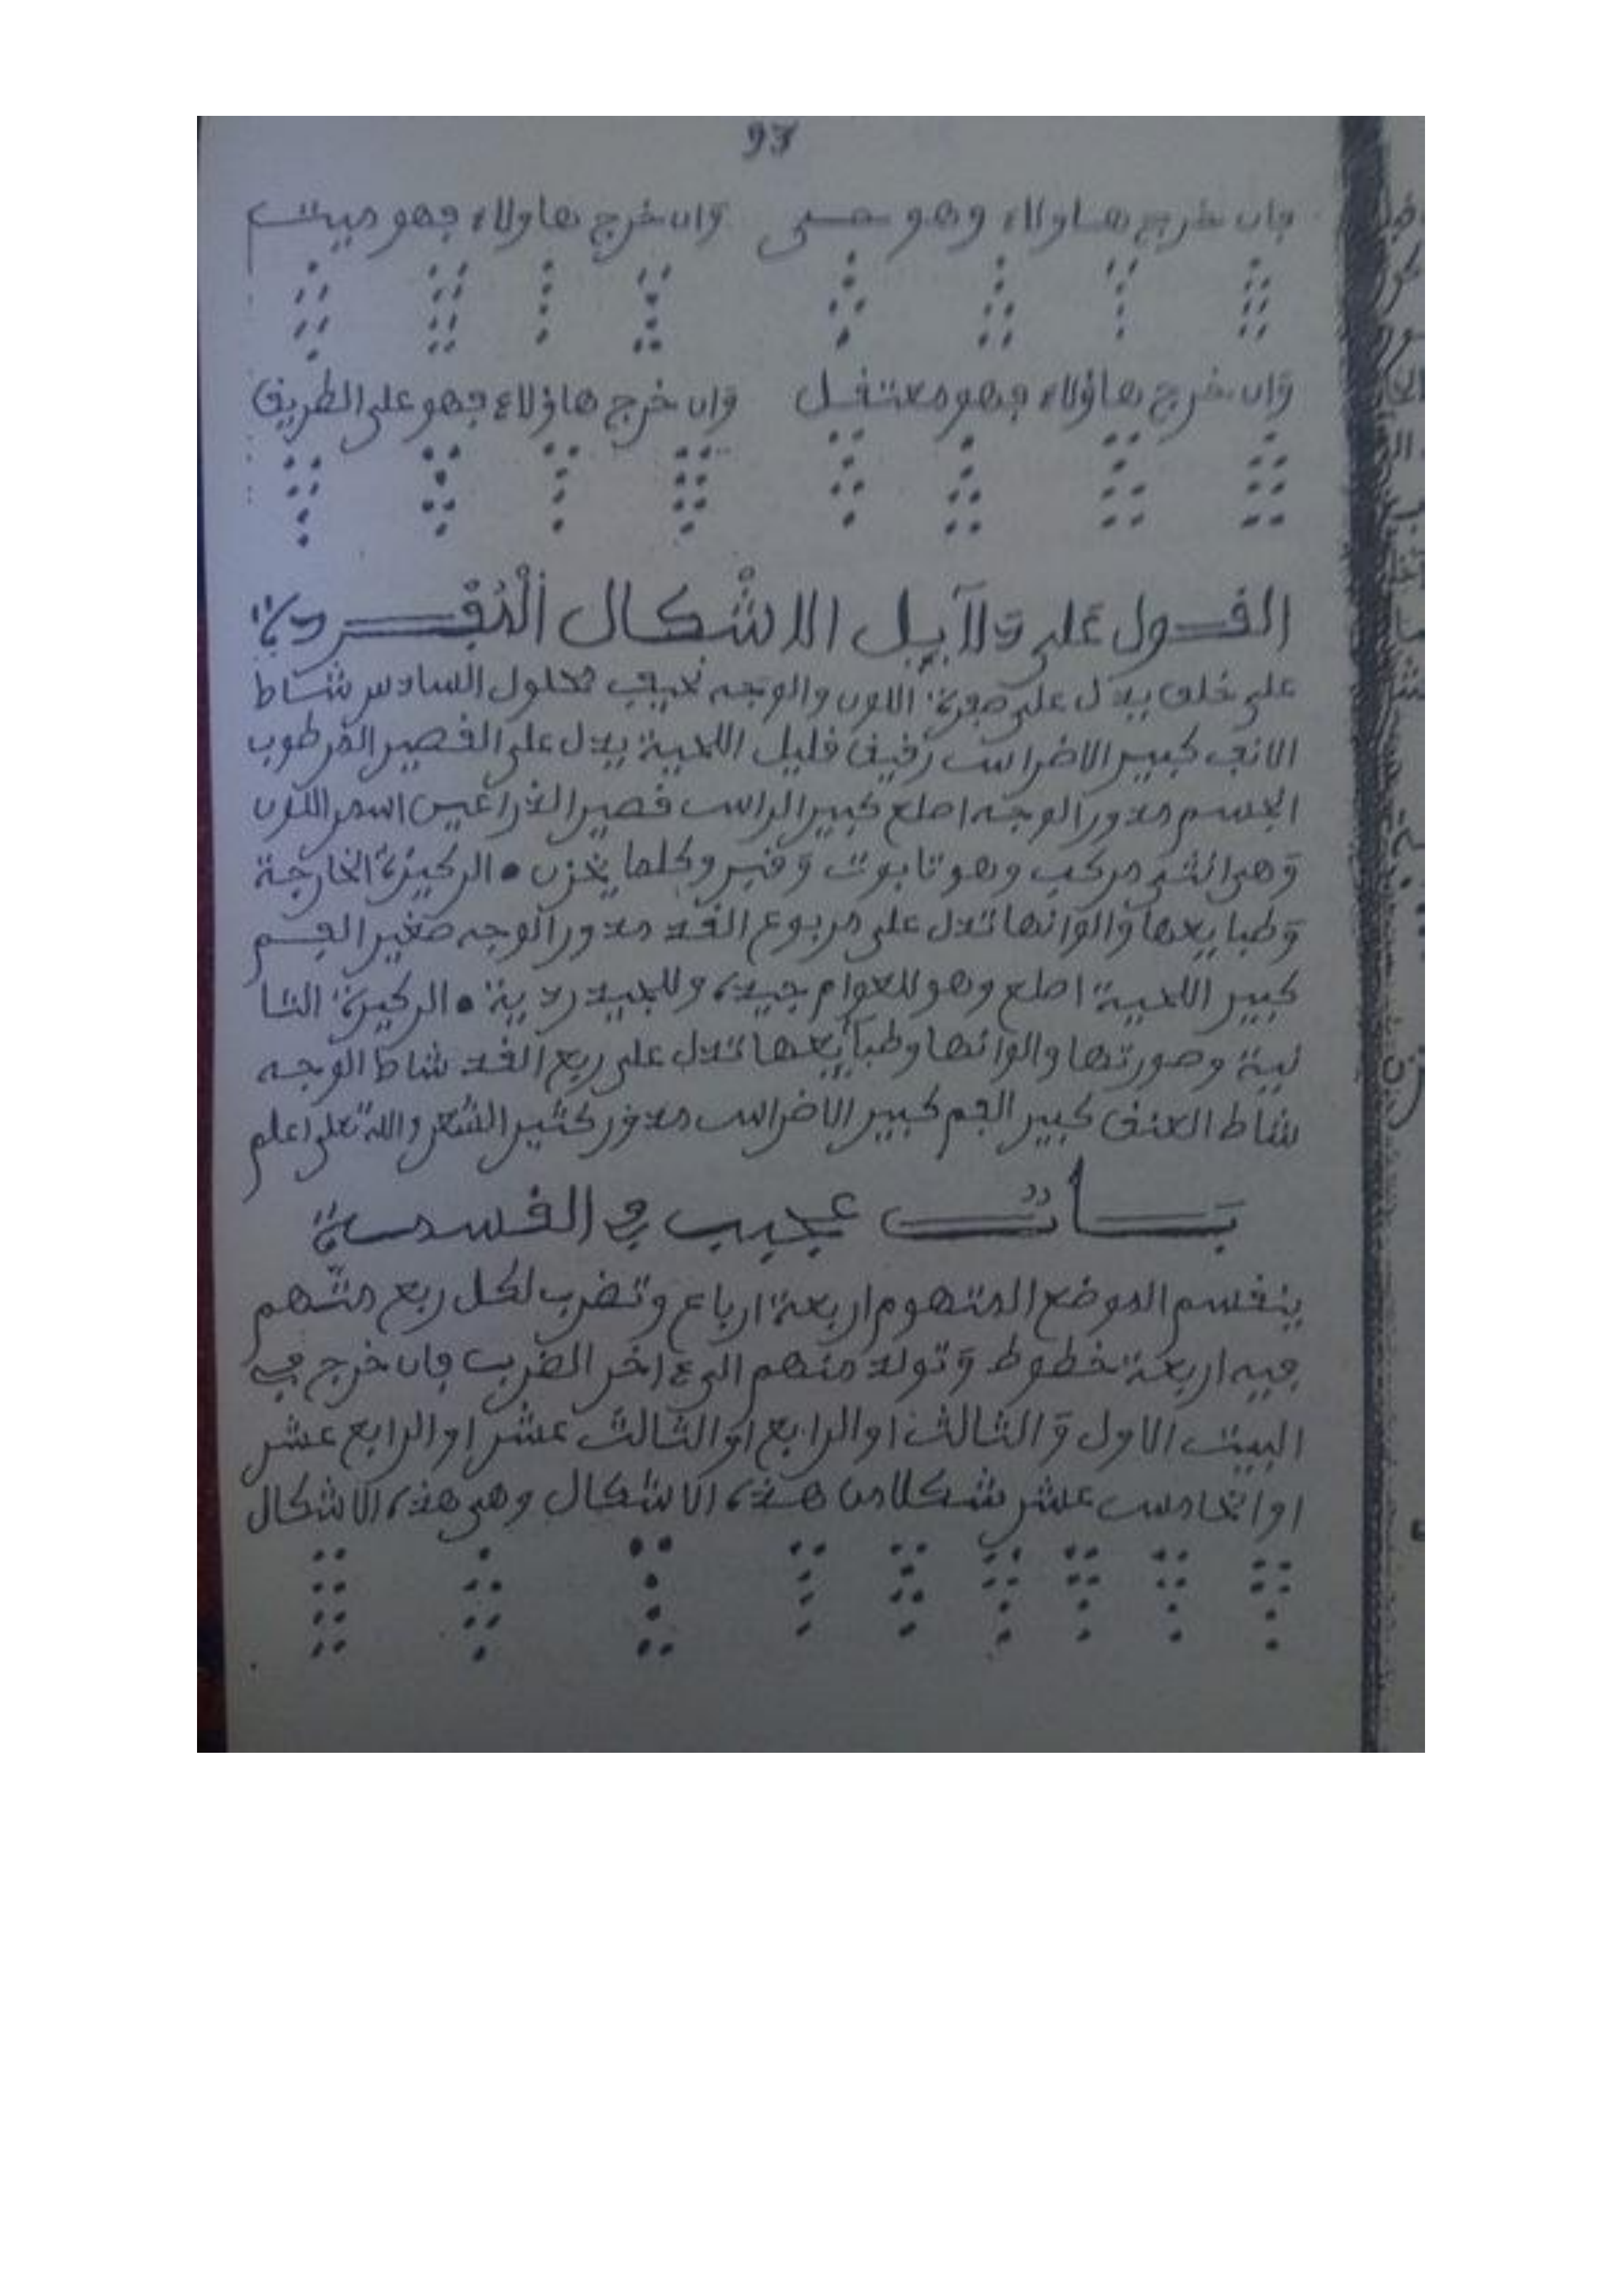 93
فان خرج هاولاء وهو حي وان خرج هاولاء فهو ميت
وان خرج هاؤلاء فهو معتقل وان خرج هاؤلاء فهو على الطريق
القول على دلآيل الاشكال المفردة
على خلق يدل على صفرة اللون والوجه نحيف محلول السادس شاط
الانف كبير الاضراس رقيق قليل اللحية يدل على القصير المرطوب
الجسم مدور الوجه اصلع كبير الراس قصير الذراعين اسمر اللون
وهي انثى مركب وهو تابوت وقبر وكلما يخزن • الركيزة الخارجة
وطبايعها والوانها تدل على مربوع القد مدور الوجه صغير الجسم
كبير اللحية اصلع وهو للعوام جيدة وللجيد ردية • الركيزة الثا
نية وصورتها والوانها وطبآيعها تدل على ربع القد شاط الوجه
شاط العنق كبير الفم كبير الاضراس مدور كثير الشعر والله تعلى اعلم
باب عجيب في القسمة
ينقسم الموضع المتهوم اربعة ارباع وتضرب لكل ربع منهم
فيه اربعة خطوط وتولد منهم الى ءاخر الضرب فان خرج في
البيت الاول والثالث او الرابع او الثالث عشر او الرابع عشر
او الخامس عشر شكلا من هذه الاشكال وهي هذه الاشكال